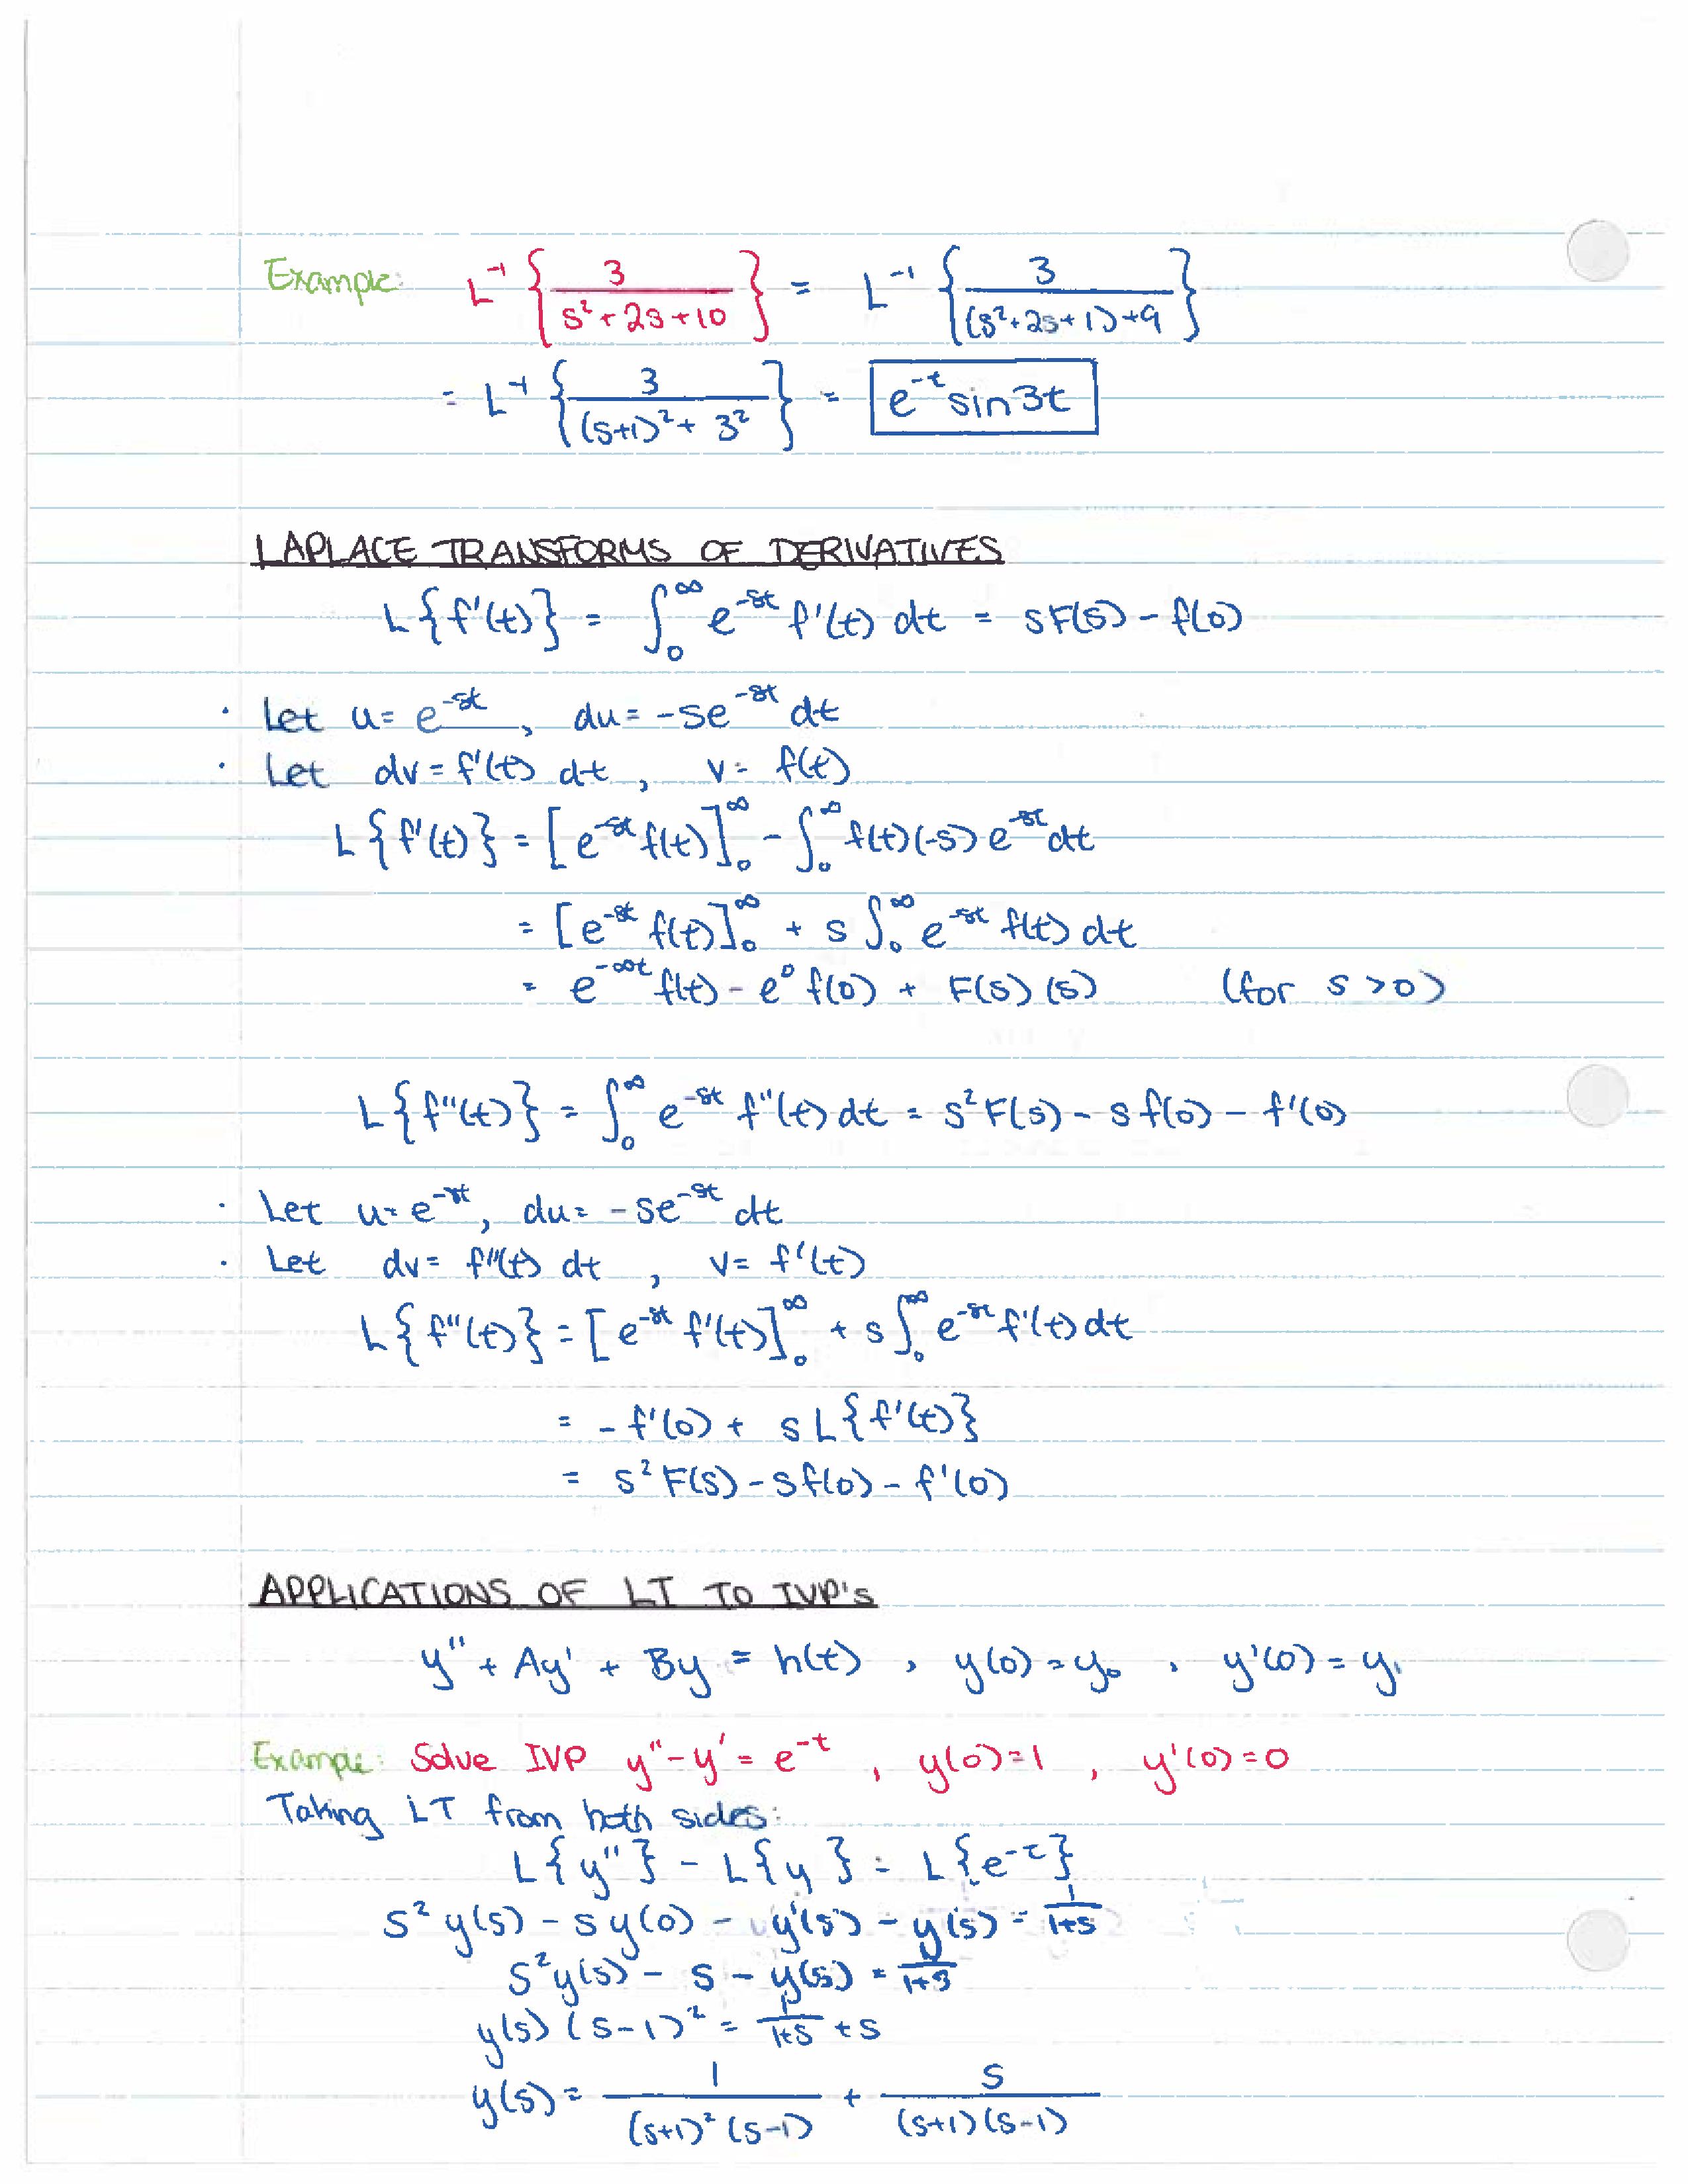 Example: L⁻¹ { 3 / (s² + 2s + 10) } = L⁻¹ { 3 / ((s² + 2s + 1) + 9) }
= L⁻¹ { 3 / ((s+1)² + 3²) } = e^(-t) sin3t
LAPLACE TRANSFORMS OF DERIVATIVES
L{f'(t)} = ∫₀^∞ e^(-st) f'(t) dt = sF(s) - f(0)
· Let u = e^(-st), du = -se^(-st) dt
· Let dv = f'(t) dt, v = f(t)
L{f'(t)} = [e^(-st) f(t)]₀^∞ - ∫₀^∞ f(t)(-s) e^(-st) dt
= [e^(-st) f(t)]₀^∞ + s ∫₀^∞ e^(-st) f(t) dt
= e^(-∞t) f(t) - e⁰ f(0) + F(s)(s) (for s > 0)
L{f''(t)} = ∫₀^∞ e^(-st) f''(t) dt = s²F(s) - sf(0) - f'(0)
· Let u = e^(-st), du = -se^(-st) dt
· Let dv = f''(t) dt, v = f'(t)
L{f''(t)} = [e^(-st) f'(t)]₀^∞ + s∫₀^∞ e^(-st) f'(t) dt
= -f'(0) + sL{f'(t)}
= s²F(s) - sf(0) - f'(0)
APPLICATIONS OF LT TO IVP's
y'' + Ay' + By = h(t), y(0) = y₀, y'(0) = y₁
Example: Solve IVP y'' - y' = e^(-t), y(0)=1, y'(0)=0
Taking LT from both sides:
L{y''} - L{y} = L{e^(-t)}
s² y(s) - sy(0) - y'(s) - y(s) = 1/(1+s)
s²y(s) - s - y(s) = 1/(1+s)
y(s)(s-1)² = 1/(1+s) + s
y(s) = 1/((s+1)²(s-1)) + s/((s+1)(s-1))